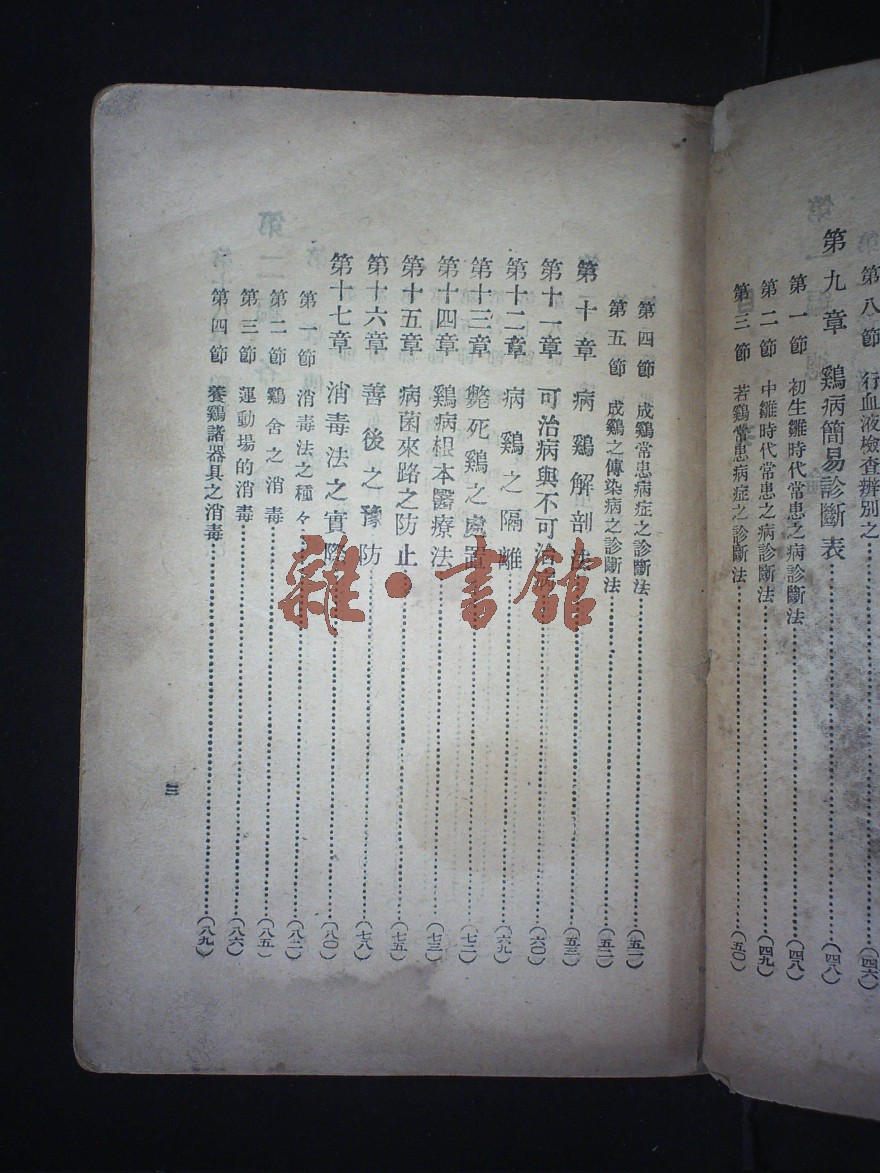 第八節 行血液檢查辨別之……(四六)
第九章 鷄病簡易診斷表……(四八)
第一節 初生雛時代常患之病診斷法……(四八)
第二節 中雛時代常患之病診斷法……(四九)
第三節 若鷄常患病症之診斷法……(五〇)
第四節 成鷄常患病症之診斷法……(五一)
第五節 成鷄之傳染病之診斷法……(五二)
第十章 病鷄解剖法……(五三)
第十一章 可治病與不可治……(六〇)
第十二章 病鷄之隔離……(六九)
第十三章 斃死鷄之處置……(七二)
第十四章 鷄病根本醫療法……(七三)
第十五章 病菌來路之防止……(七五)
第十六章 善後之豫防……(七八)
第十七章 消毒法之實際……(八〇)
第一節 消毒法之種々……(八二)
第二節 鷄舍之消毒……(八五)
第三節 運動場的消毒……(八六)
第四節 養鷄諸器具之消毒……(八九)
三
雜·書館